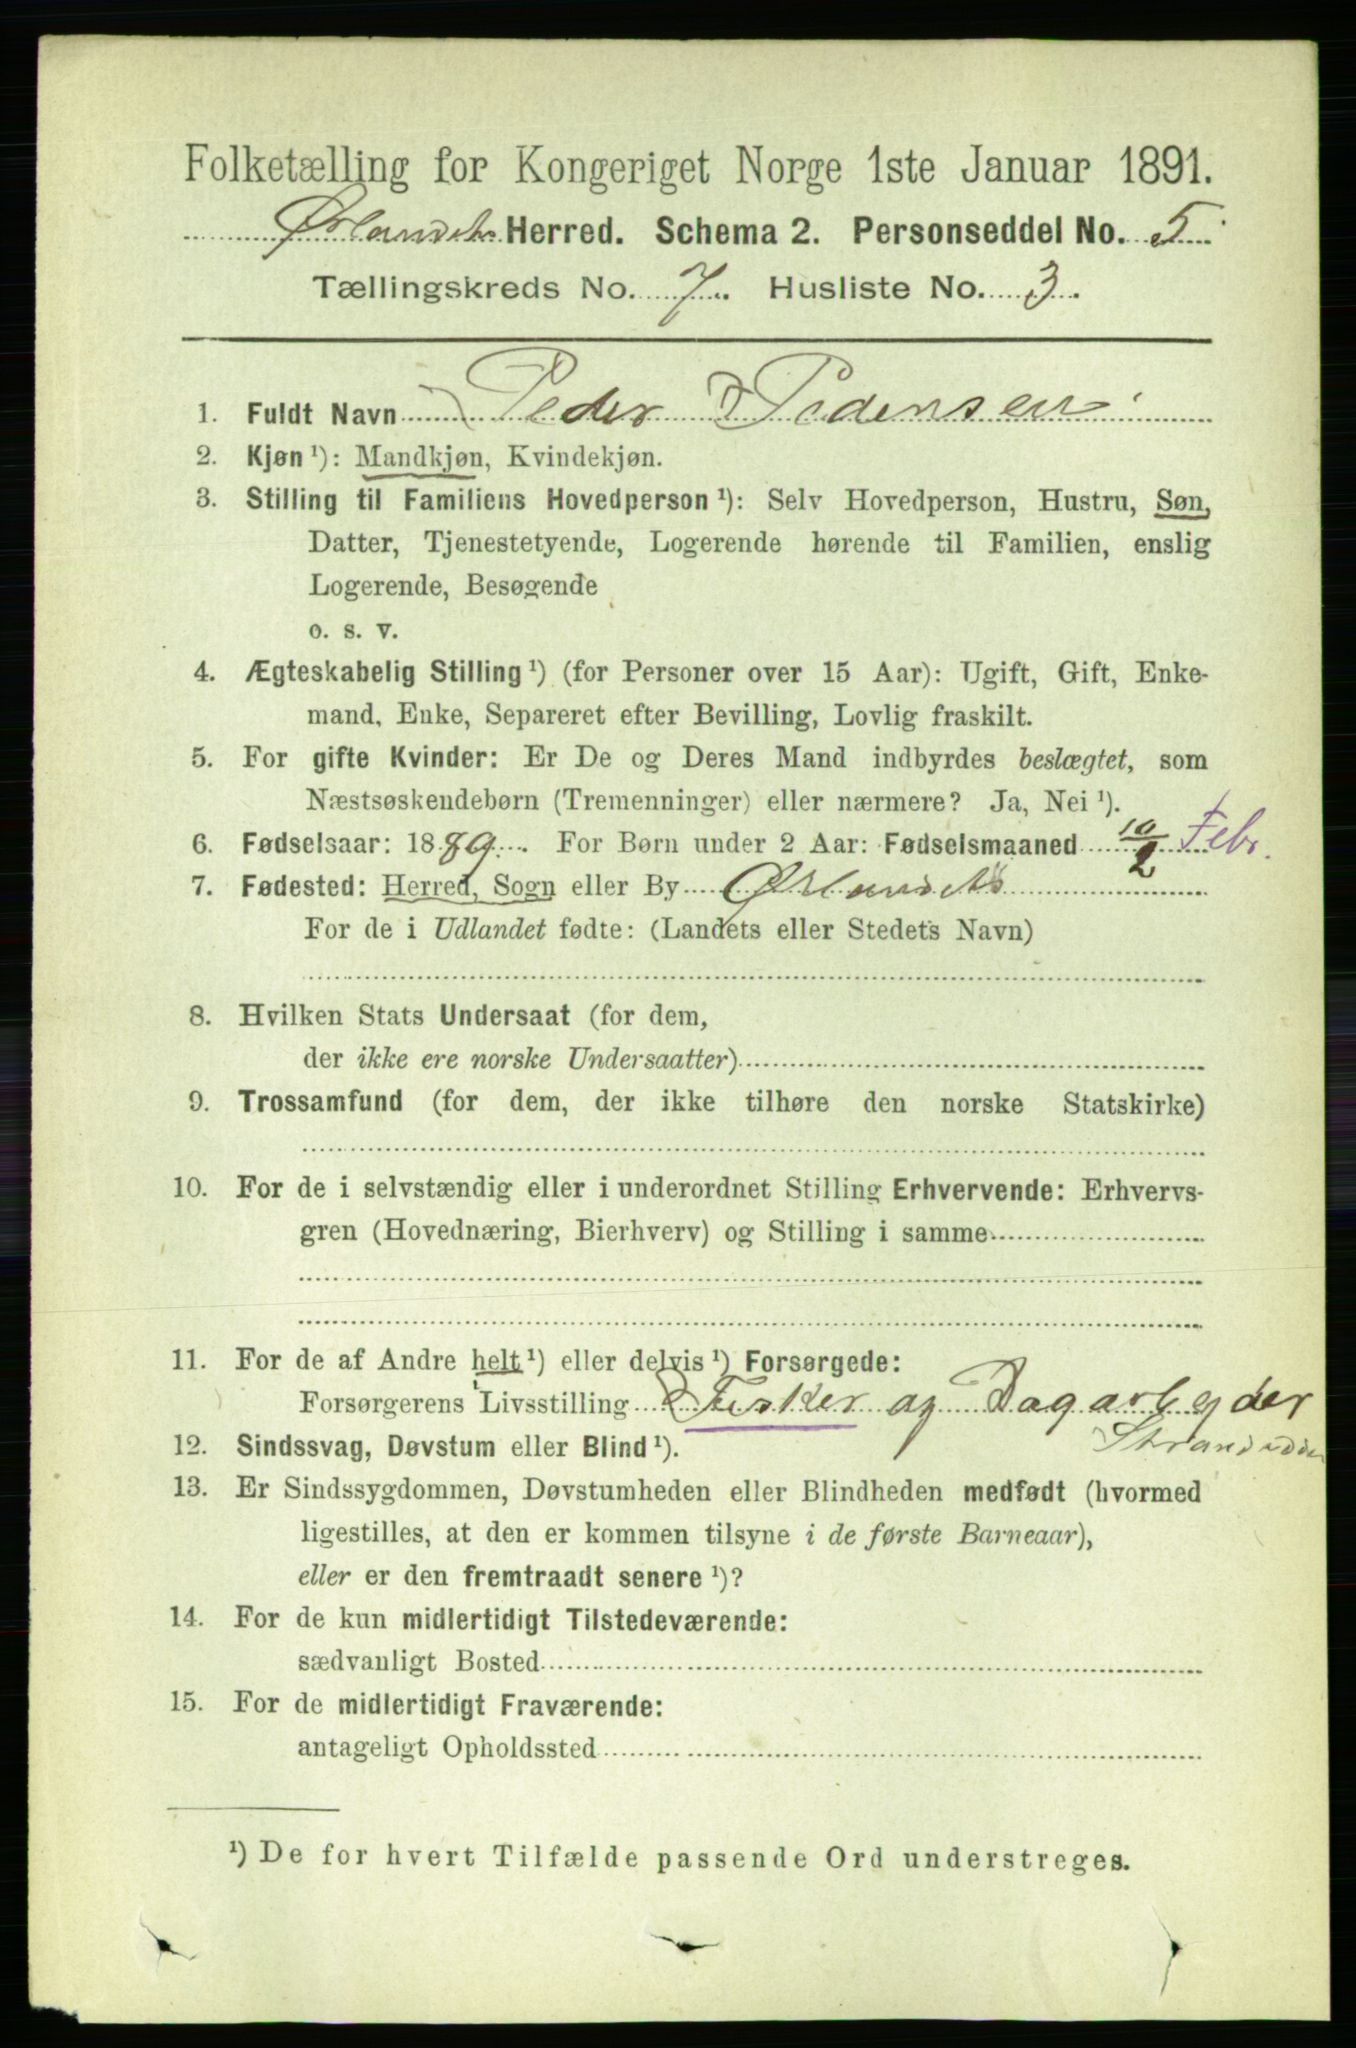 Folketælling for Kongeriget Norge 1ste Januar 1891.
Ørlandets Herred. Schema 2. Personseddel No. 5.
Tællingskreds No. 7. Husliste No. 3.
1. Fuldt Navn Peder Pedersen
2. Kjøn ¹): Mandkjøn, Kvindekjøn.
3. Stilling til Familiens Hovedperson ¹): Selv Hovedperson, Hustru, Søn,
Datter, Tjenestetyende, Logerende hørende til Familien, enslig
Logerende, Besøgende
o. s. v.
4. Ægteskabelig Stilling ¹) (for Personer over 15 Aar): Ugift, Gift, Enke-
mand, Enke, Separeret efter Bevilling, Lovlig fraskilt.
5. For gifte Kvinder: Er De og Deres Mand indbyrdes beslægtet, som
Næstsøskendebørn (Tremenninger) eller nærmere? Ja, Nei ¹).
6. Fødselsaar: 1889. For Børn under 2 Aar: Fødselsmaaned 10/2 Febr.
7. Fødested: Herred, Sogn eller By Ørlandets
For de i Udlandet fødte: (Landets eller Stedets Navn)
8. Hvilken Stats Undersaat (for dem,
der ikke ere norske Undersaatter)
9. Trossamfund (for dem, der ikke tilhøre den norske Statskirke)
10. For de i selvstændig eller i underordnet Stilling Erhvervende: Erhvervs-
gren (Hovednæring, Bierhverv) og Stilling i samme
11. For de af Andre helt ¹) eller delvis ¹) Forsørgede:
Forsørgerens Livsstilling Fisker og Dagarbeyder
12. Sindssvag, Døvstum eller Blind ¹).
13. Er Sindssygdommen, Døvstumheden eller Blindheden medfødt (hvormed
ligestilles, at den er kommen tilsyne i de første Barneaar),
eller er den fremtraadt senere ¹)?
14. For de kun midlertidigt Tilstedeværende:
sædvanligt Bosted
15. For de midlertidigt Fraværende:
antageligt Opholdssted
¹) De for hvert Tilfælde passende Ord understreges.